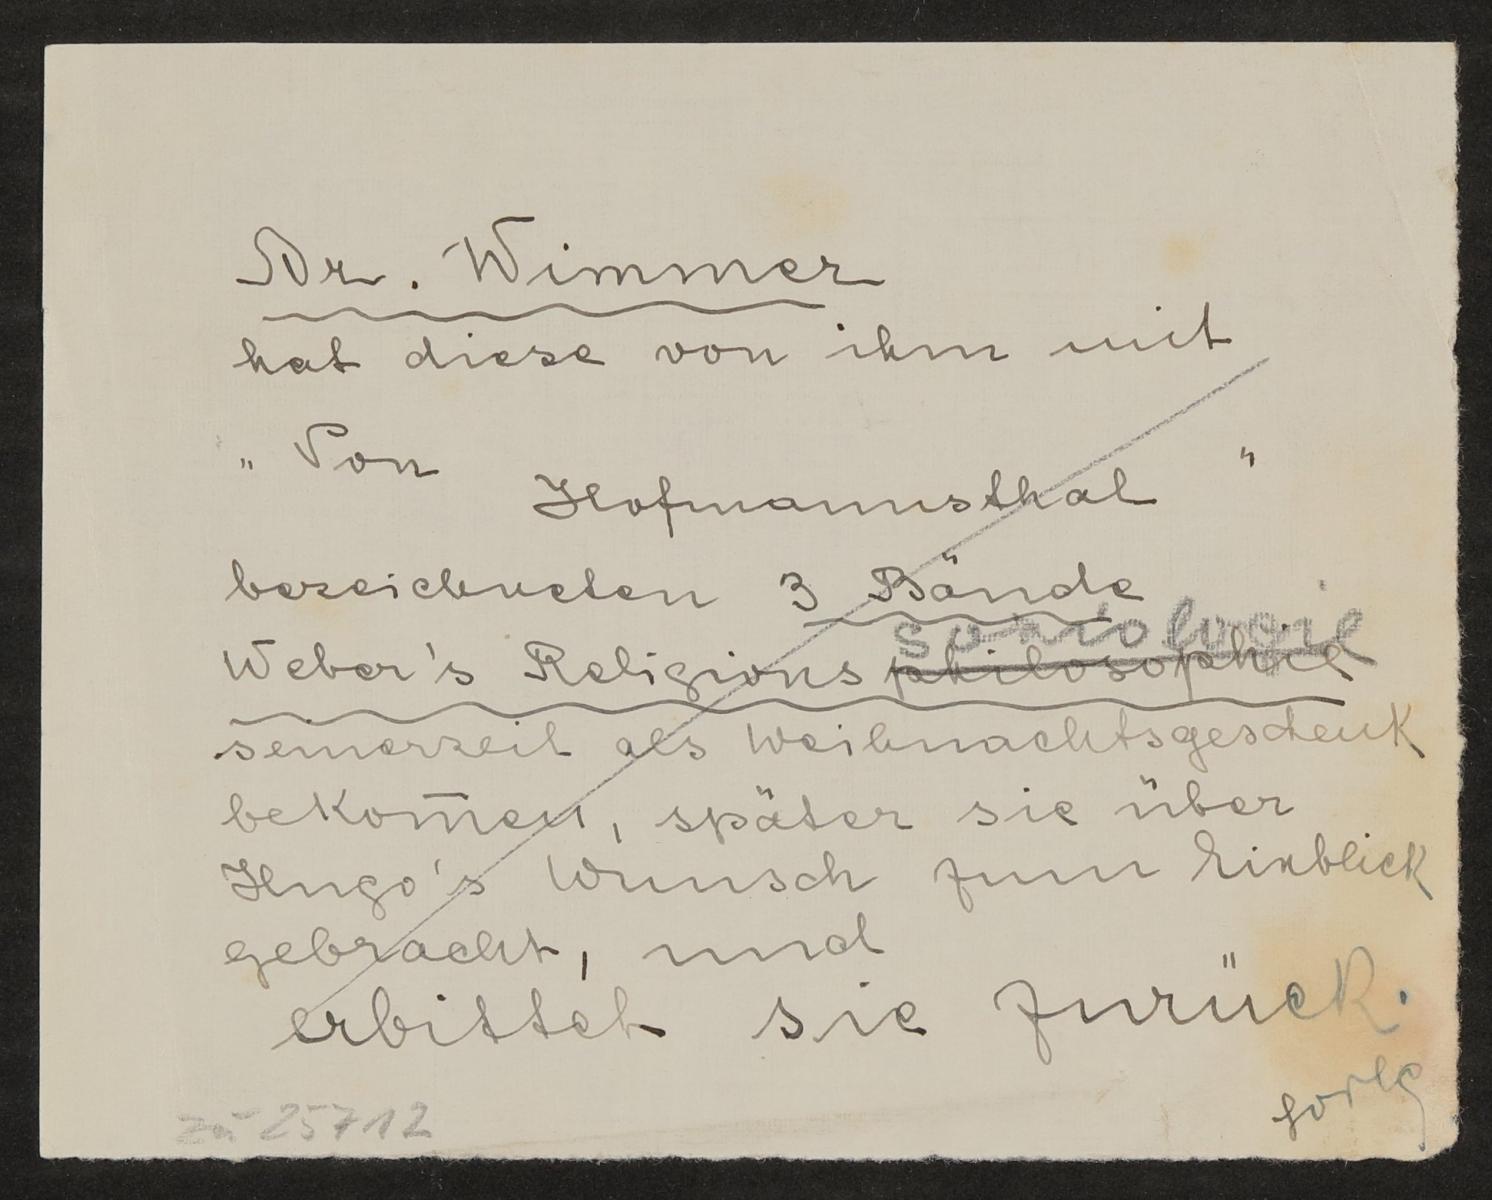 Dr. Wimmer
hat diese von ihm mit
" Von
Hofmannsthal "
bezeichneten 3 Bände
soziologie
Weber's Religionsphilosophie
seinerzeit als Weihnachtsgeschenk
bekom̄en, später sie über
Hugo's Wunsch zum Einblick
gebracht, und
erbittet sie zurück.
zu 25712